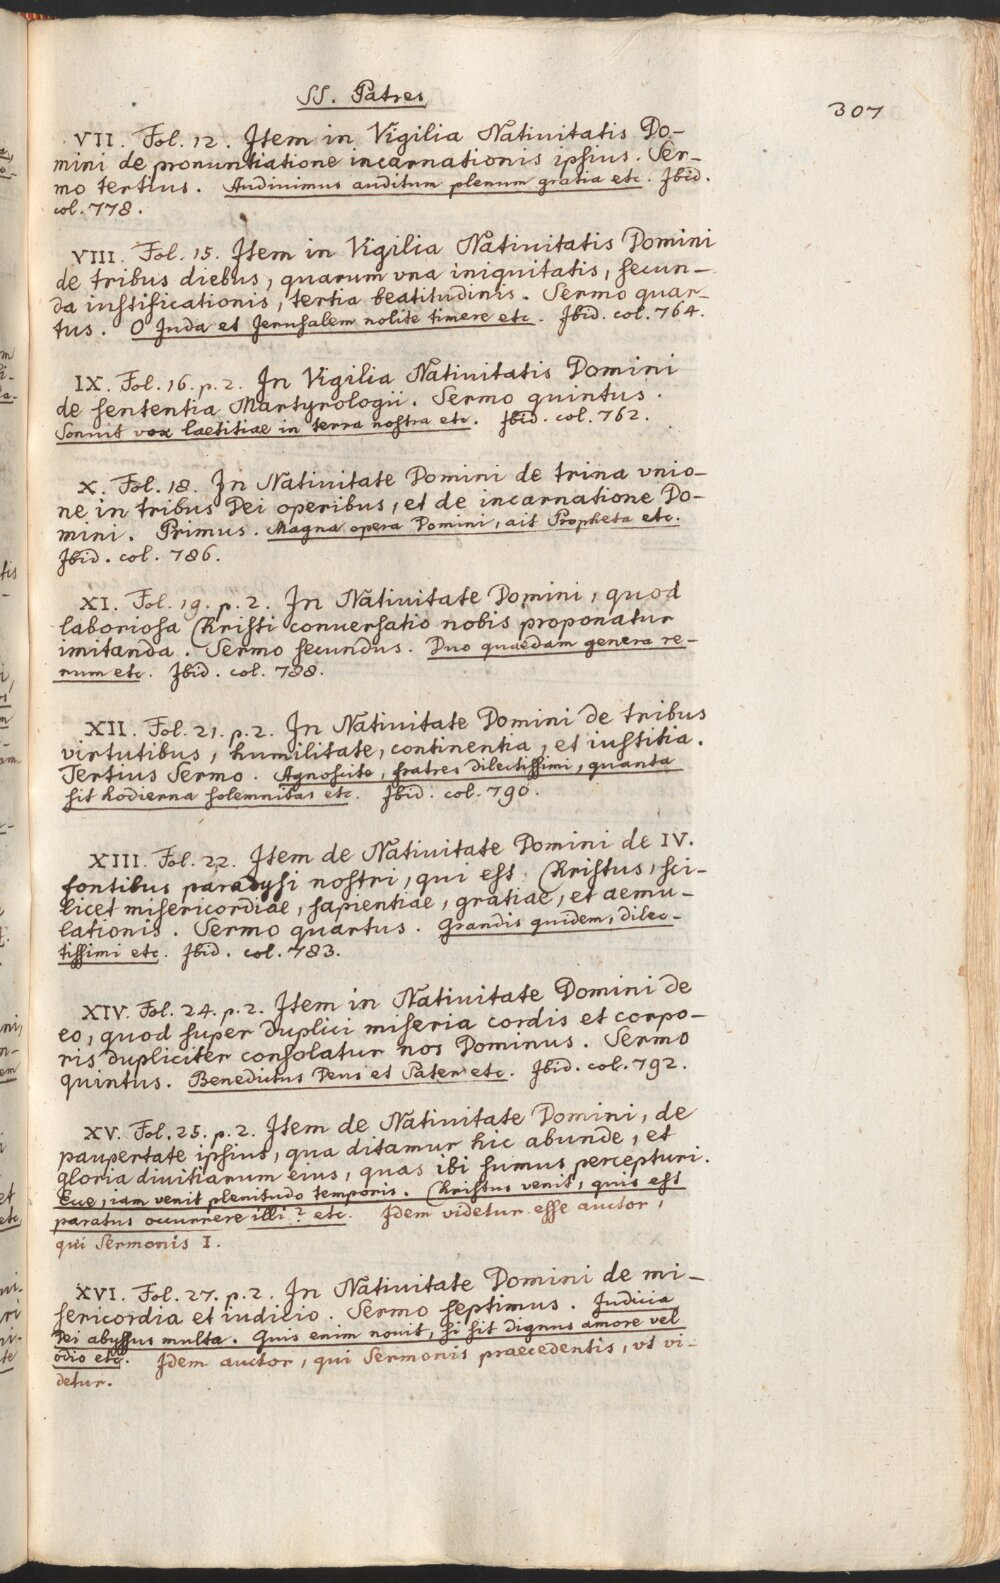 SS. Patres
307
VII. Fol. 12. Item in Vigilia Natiuitatis Do-
mini de pronuntiatione incarnationis ipsius. Ser-
mo tertius. Audiuimus auditum plenum gratia etc. Ibid.
col. 778.
VIII. Fol. 15. Item in Vigilia Natiuitatis Domini
de tribus diebus, quarum vna iniquitatis, secun-
da iustificationis, tertia beatitudinis. Sermo quar-
tus. O Juda et Jerusalem nolite timere etc. Ibid. col. 764.
IX. Fol. 16. p. 2. In Vigilia Natiuitatis Domini
de sententia Martyrologii. Sermo quintus.
Sonuit vox laetitiae in terra nostra etc. Ibid. col. 762.
X. Fol. 18. In Natiuitate Domini de trina vnio-
ne in tribus Dei operibus, et de incarnatione Do-
mini. Primus. Magna opera Domini, ait Propheta etc.
Ibid. col. 786.
XI. Fol. 19. p. 2. In Natiuitate Domini, quod
laboriosa Christi conuersatio nobis proponatur
imitanda. Sermo secundus. Duo quaedam genera re-
rum etc. Ibid. col. 788.
XII. Fol. 21. p. 2. In Natiuitate Domini de tribus
virtutibus, humilitate, continentia, et iustitia.
Tertius Sermo. Agnoscite, fratres dilectissimi, quanta
sit hodierna solemnitas etc. Ibid. col. 790.
XIII. Fol. 22. Item de Natiuitate Domini de IV.
fontibus paradysi nostri, qui est Christus, sci-
licet misericordiae, sapientiae, gratiae, et aemu-
lationis. Sermo quartus. Grandis quidem, dilec-
tissimi etc. Ibid. col. 783.
XIV. Fol. 24. p. 2. Item in Natiuitate Domini de
eo, quod super duplici miseria cordis et corpo-
ris dupliciter consolatur nos Dominus. Sermo
quintus. Benedictus Deus et Pater etc. Ibid. col. 792.
XV. Fol. 25. p. 2. Item de Natiuitate Domini, de
paupertate ipsius, qua ditamur hic abunde, et
gloria diuitiarum eius, quas ibi sumus percepturi.
Ecce, iam venit plenitudo temporis. Christus venit, quis est
paratus occurrere illi? etc. Idem videtur esse auctor,
qui Sermonis I.
XVI. Fol. 27. p. 2. In Natiuitate Domini de mi-
sericordia et iudicio. Sermo septimus. Judicia
Dei abyssus multa. Quis enim nouit, si sit dignus amore vel
odio etc. Idem auctor, qui Sermonis praecedentis, vt vi-
detur.